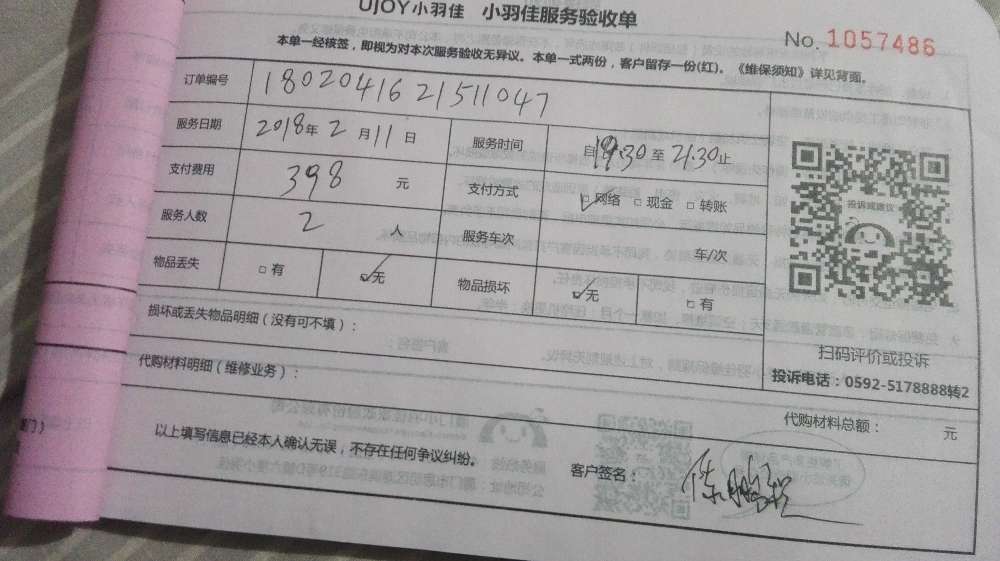 UJOY小羽佳 小羽佳服务验收单
No. 1057486
本单一经核签，即视为对本次服务验收无异议。本单一式两份，客户留存一份(红)。《维保须知》详见背面。
订单编号 1802041621511047
服务日期 2018年2月11日 服务时间 自19:30至21:30止
支付费用 398元 支付方式 ☑网络 □现金 □转账
服务人数 2人 服务车次 车/次
物品丢失 □有 ☑无 物品损坏 ☑无 □有
损坏或丢失物品明细（没有可不填）：
代购材料明细（维修业务）：
投诉或建议
扫码评价或投诉
投诉电话：0592-5178888转2
代购材料总额： 元
以上填写信息已经本人确认无误，不存在任何争议纠纷。
客户签名：